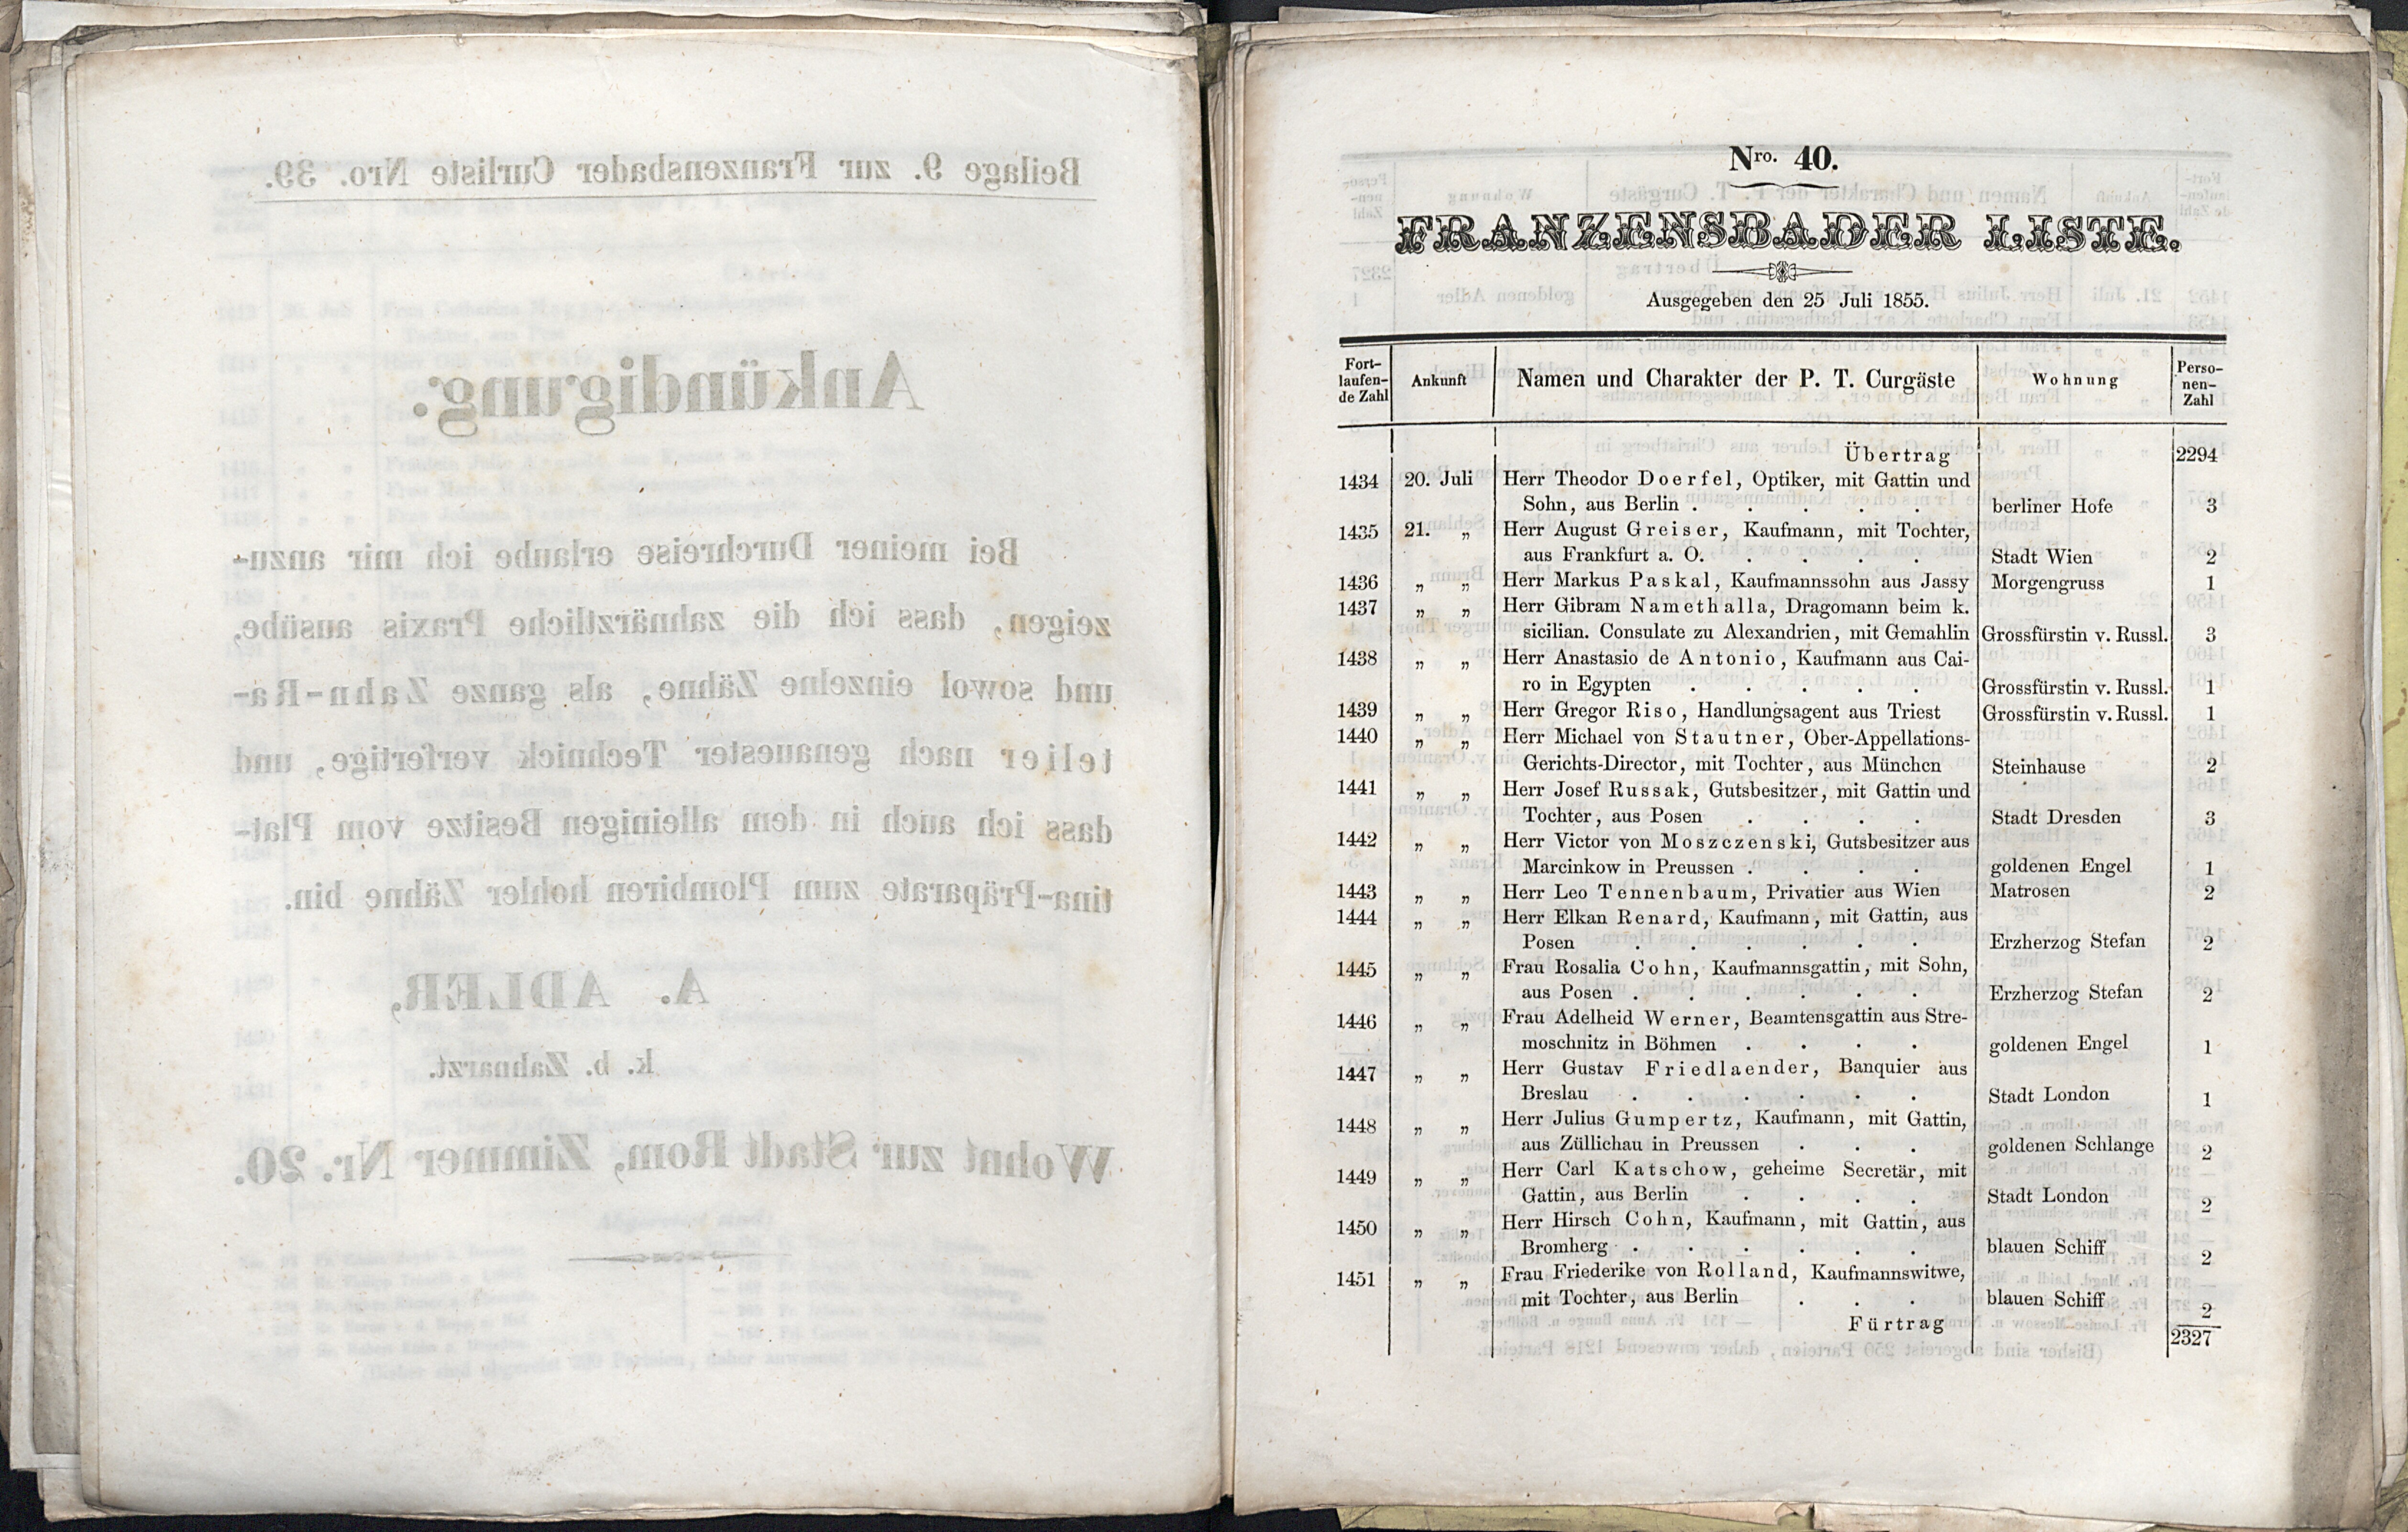 Beilage 9. zur Franzensbader Curliste Nro. 39.
Ankündigung.
Bei meiner Durchreise erlaube ich mir anzu-
zeigen, dass ich die zahnärztliche Praxis ausübe,
und sowol einzelne Zähne, als ganze Zahn-Ra-
telier nach genauester Technick verfertige, und
dass ich auch in dem alleinigen Besitze vom Plat-
tina-Präparate zum Plombiren hohler Zähne bin.
A. ADLER,
k. b. Zahnarzt.
Wohnt zur Stadt Rom, Zimmer Nr. 20.
Nro. 40.
FRANZENSBADER LISTE.
Ausgegeben den 25 Juli 1855.
Fort-laufen-de Zahl Ankunft Namen und Charakter der P. T. Curgäste Wohnung Perso-nen-Zahl
Übertrag 2294
1434 20. Juli Herr Theodor Doerfel, Optiker, mit Gattin und
Sohn, aus Berlin . . . . . berliner Hofe 3
1435 21. „ Herr August Greiser, Kaufmann, mit Tochter,
aus Frankfurt a. O. . . . . Stadt Wien 2
1436 „ „ Herr Markus Paskal, Kaufmannssohn aus Jassy Morgengruss 1
1437 „ „ Herr Gibram Namethalla, Dragomann beim k.
sicilian. Consulate zu Alexandrien, mit Gemahlin Grossfürstin v. Russl. 3
1438 „ „ Herr Anastasio de Antonio, Kaufmann aus Cai-
ro in Egypten . . . . . Grossfürstin v. Russl. 1
1439 „ „ Herr Gregor Riso, Handlungsagent aus Triest Grossfürstin v. Russl. 1
1440 „ „ Herr Michael von Stautner, Ober-Appellations-
Gerichts-Director, mit Tochter, aus München Steinhause 2
1441 „ „ Herr Josef Russak, Gutsbesitzer, mit Gattin und
Tochter, aus Posen . . . . Stadt Dresden 3
1442 „ „ Herr Victor von Moszczenski, Gutsbesitzer aus
Marcinkow in Preussen . . . . goldenen Engel 1
1443 „ „ Herr Leo Tennenbaum, Privatier aus Wien Matrosen 2
1444 „ „ Herr Elkan Renard, Kaufmann, mit Gattin, aus
Posen . . . . . . Erzherzog Stefan 2
1445 „ „ Frau Rosalia Cohn, Kaufmannsgattin, mit Sohn,
aus Posen . . . . . . Erzherzog Stefan 2
1446 „ „ Frau Adelheid Werner, Beamtensgattin aus Stre-
moschnitz in Böhmen . . . . goldenen Engel 1
1447 „ „ Herr Gustav Friedlaender, Banquier aus
Breslau . . . . . . Stadt London 1
1448 „ „ Herr Julius Gumpertz, Kaufmann, mit Gattin,
aus Züllichau in Preussen . . . goldenen Schlange 2
1449 „ „ Herr Carl Katschow, geheime Secretär, mit
Gattin, aus Berlin . . . . Stadt London 2
1450 „ „ Herr Hirsch Cohn, Kaufmann, mit Gattin, aus
Bromberg . . . . . . blauen Schiff 2
1451 „ „ Frau Friederike von Rolland, Kaufmannswitwe,
mit Tochter, aus Berlin . . . blauen Schiff 2
Fürtrag 2327